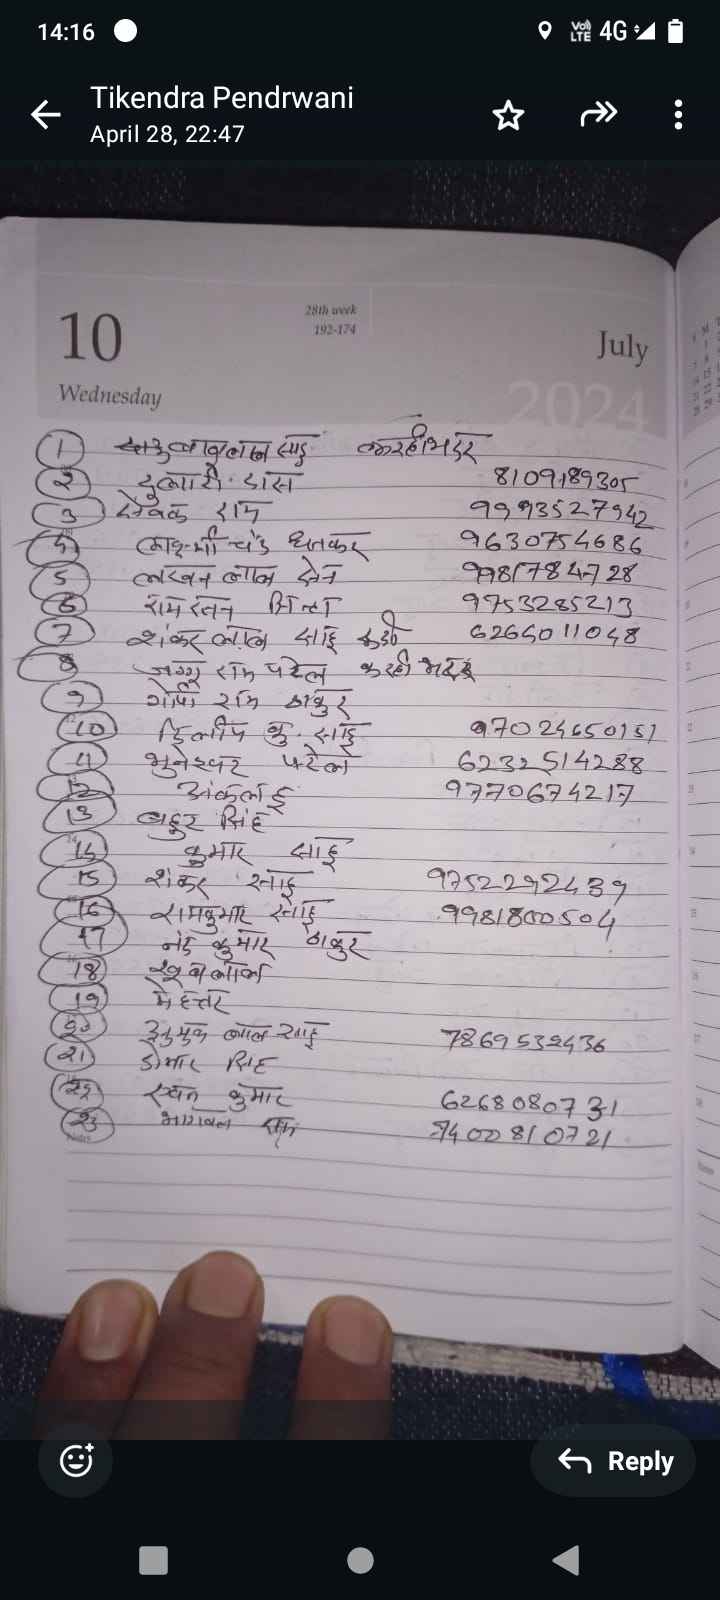 14:16
VoLTE 4G
Tikendra Pendrwani
April 28, 22:47
28th week
192-174
10
July
Wednesday
2024
1 बाबुलाल साहू करहीभदर
2 दुलारी दास 8109189305
3 सेवक राम 9993527942
4 चंद धनकर 9630754686
5 लखन लाल सेन 9981784728
6 राम रतन 9753285213
7 शंकर लाल साहू 6266011048
8 जग्गू राम पटेल करही भदर
9 गोपी राम ठाकुर
10 दिलीप कु. साहू 97024650151
11 भुनेश्वर पटेल 6232514288
12 अंकलहू 9770674217
13 सिंह
14 कुमार साहू
15 शंकर साहू 9752292439
16 रामकुमार साहू 9981800504
17 नंद कुमार ठाकुर
18
19 मेहत्तर
20 लाल साहू 7869532436
21 डोमार सिंह
22 कुमार 6268080731
23 राम 7400810721
Notes
Reply